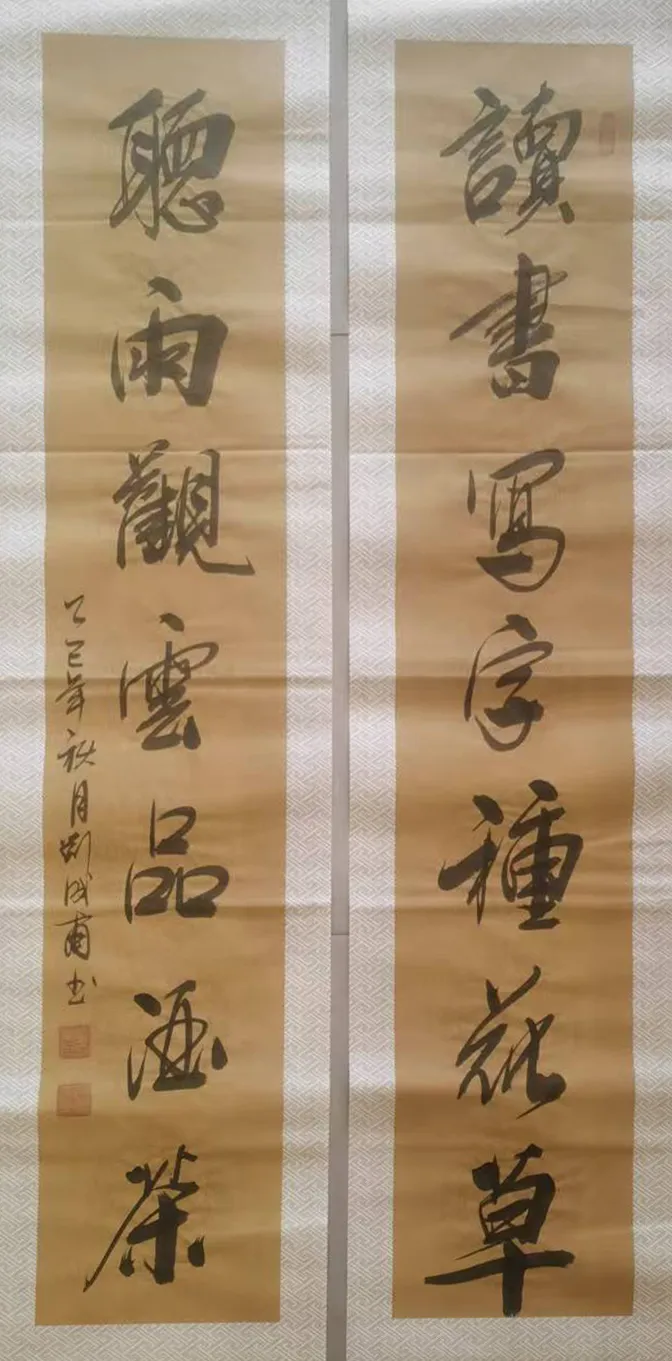 讀書寫字種花草
聽雨觀雲品酒茶
乙巳年秋月劉成南书